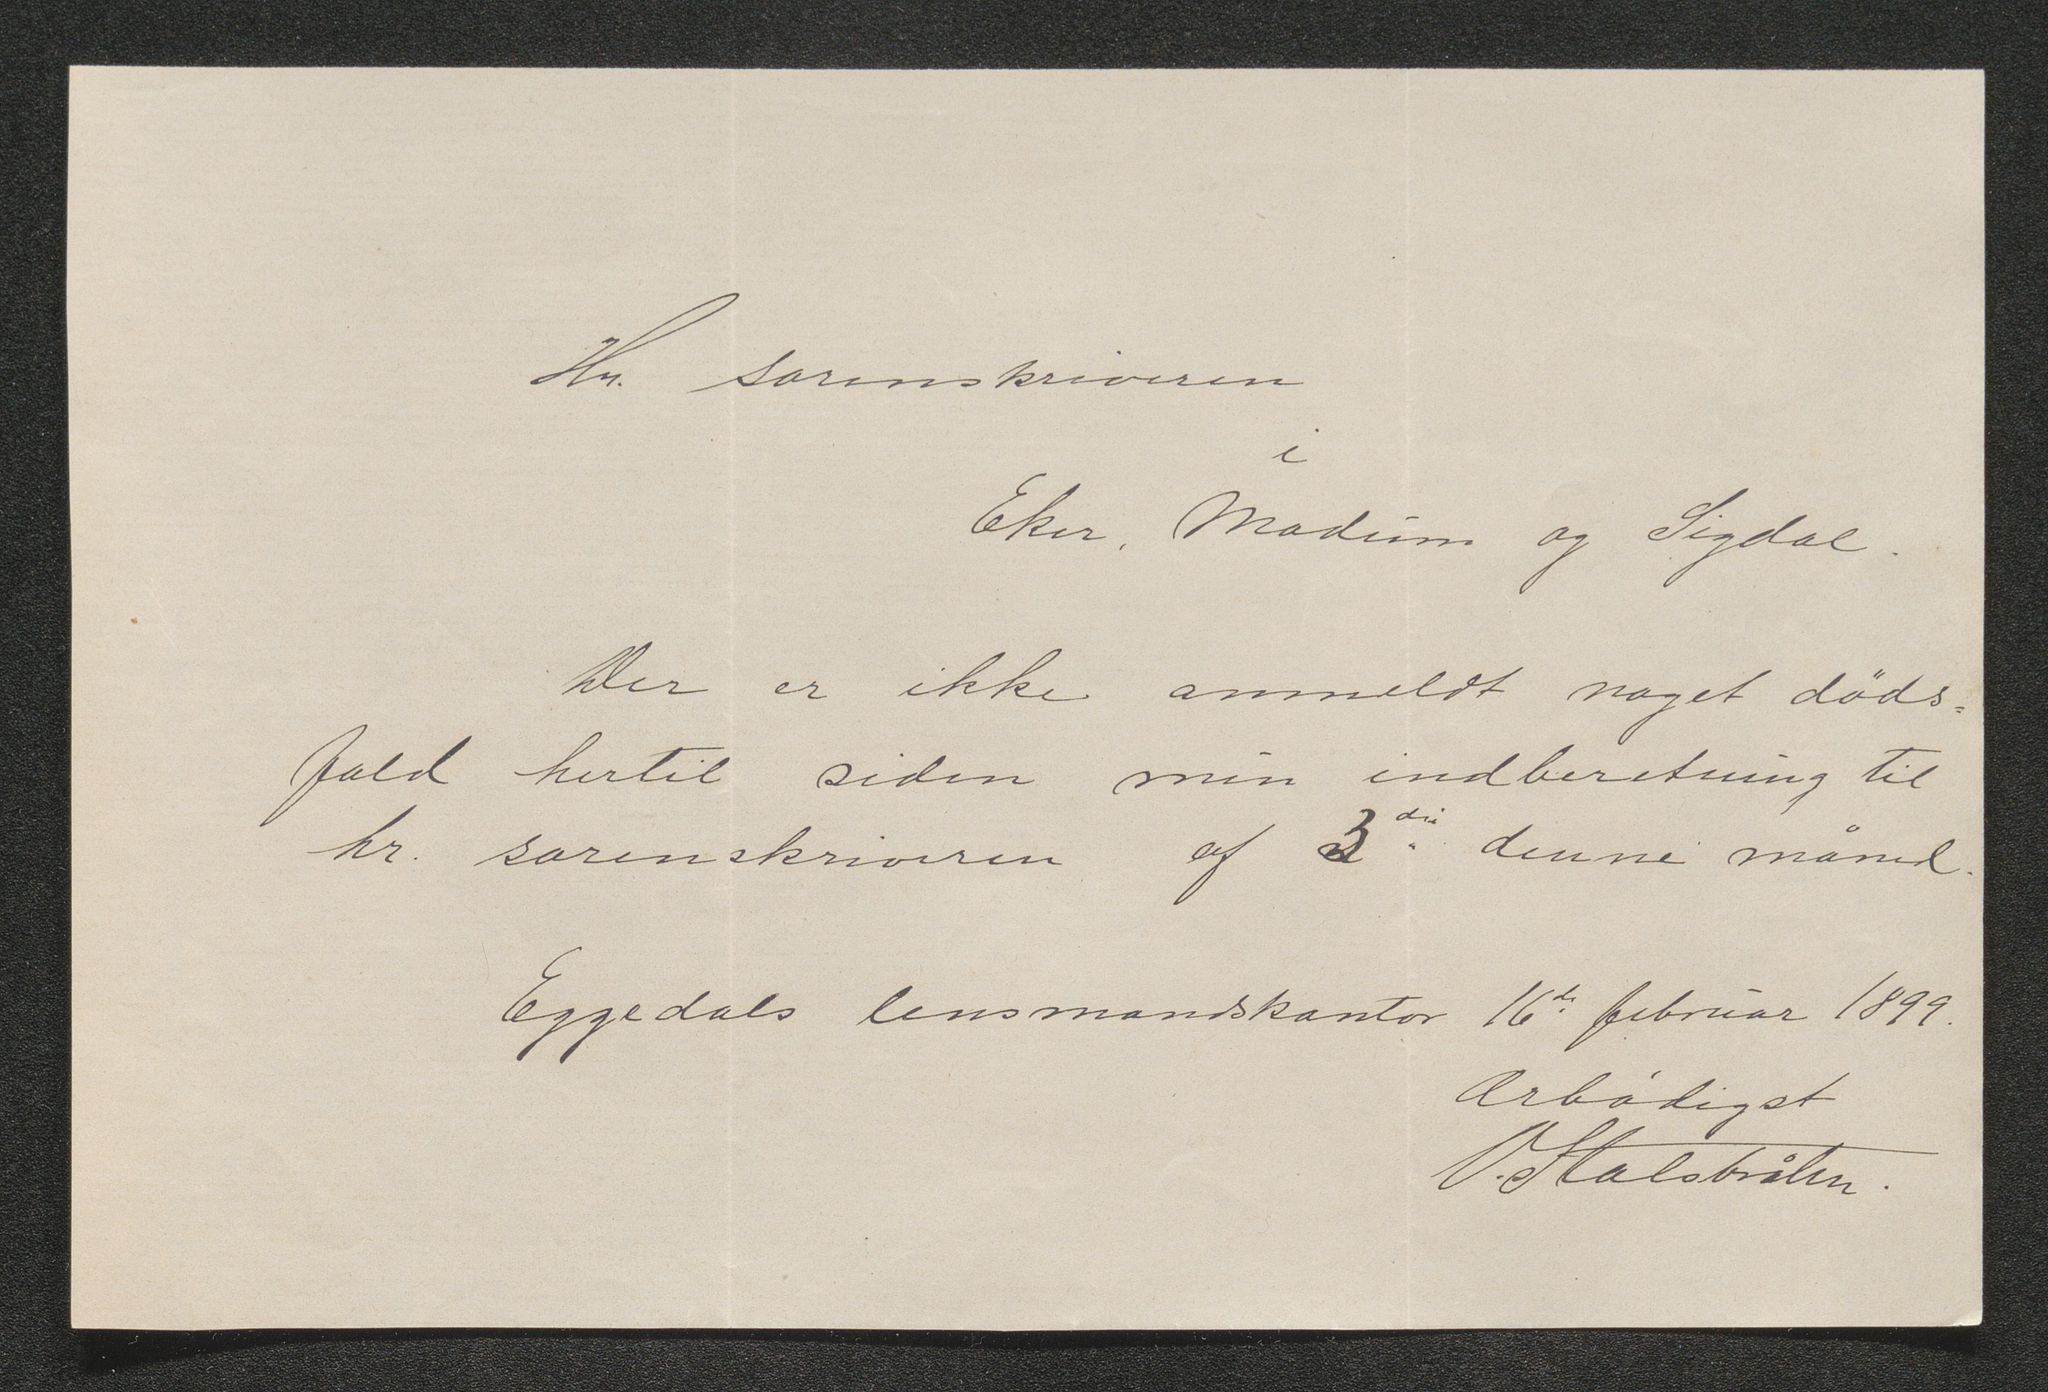 Hr. sorenskriveren
i
Eker, Modum og Sigdal.
Der er ikke anmeldt noget döds=
fald hertil siden min indberetning til
hr. sorenskriveren af 3die denne måned.
Eggedals lensmandskontor 16de februar 1899.
Ærbødigst
V. Stalsbråten.